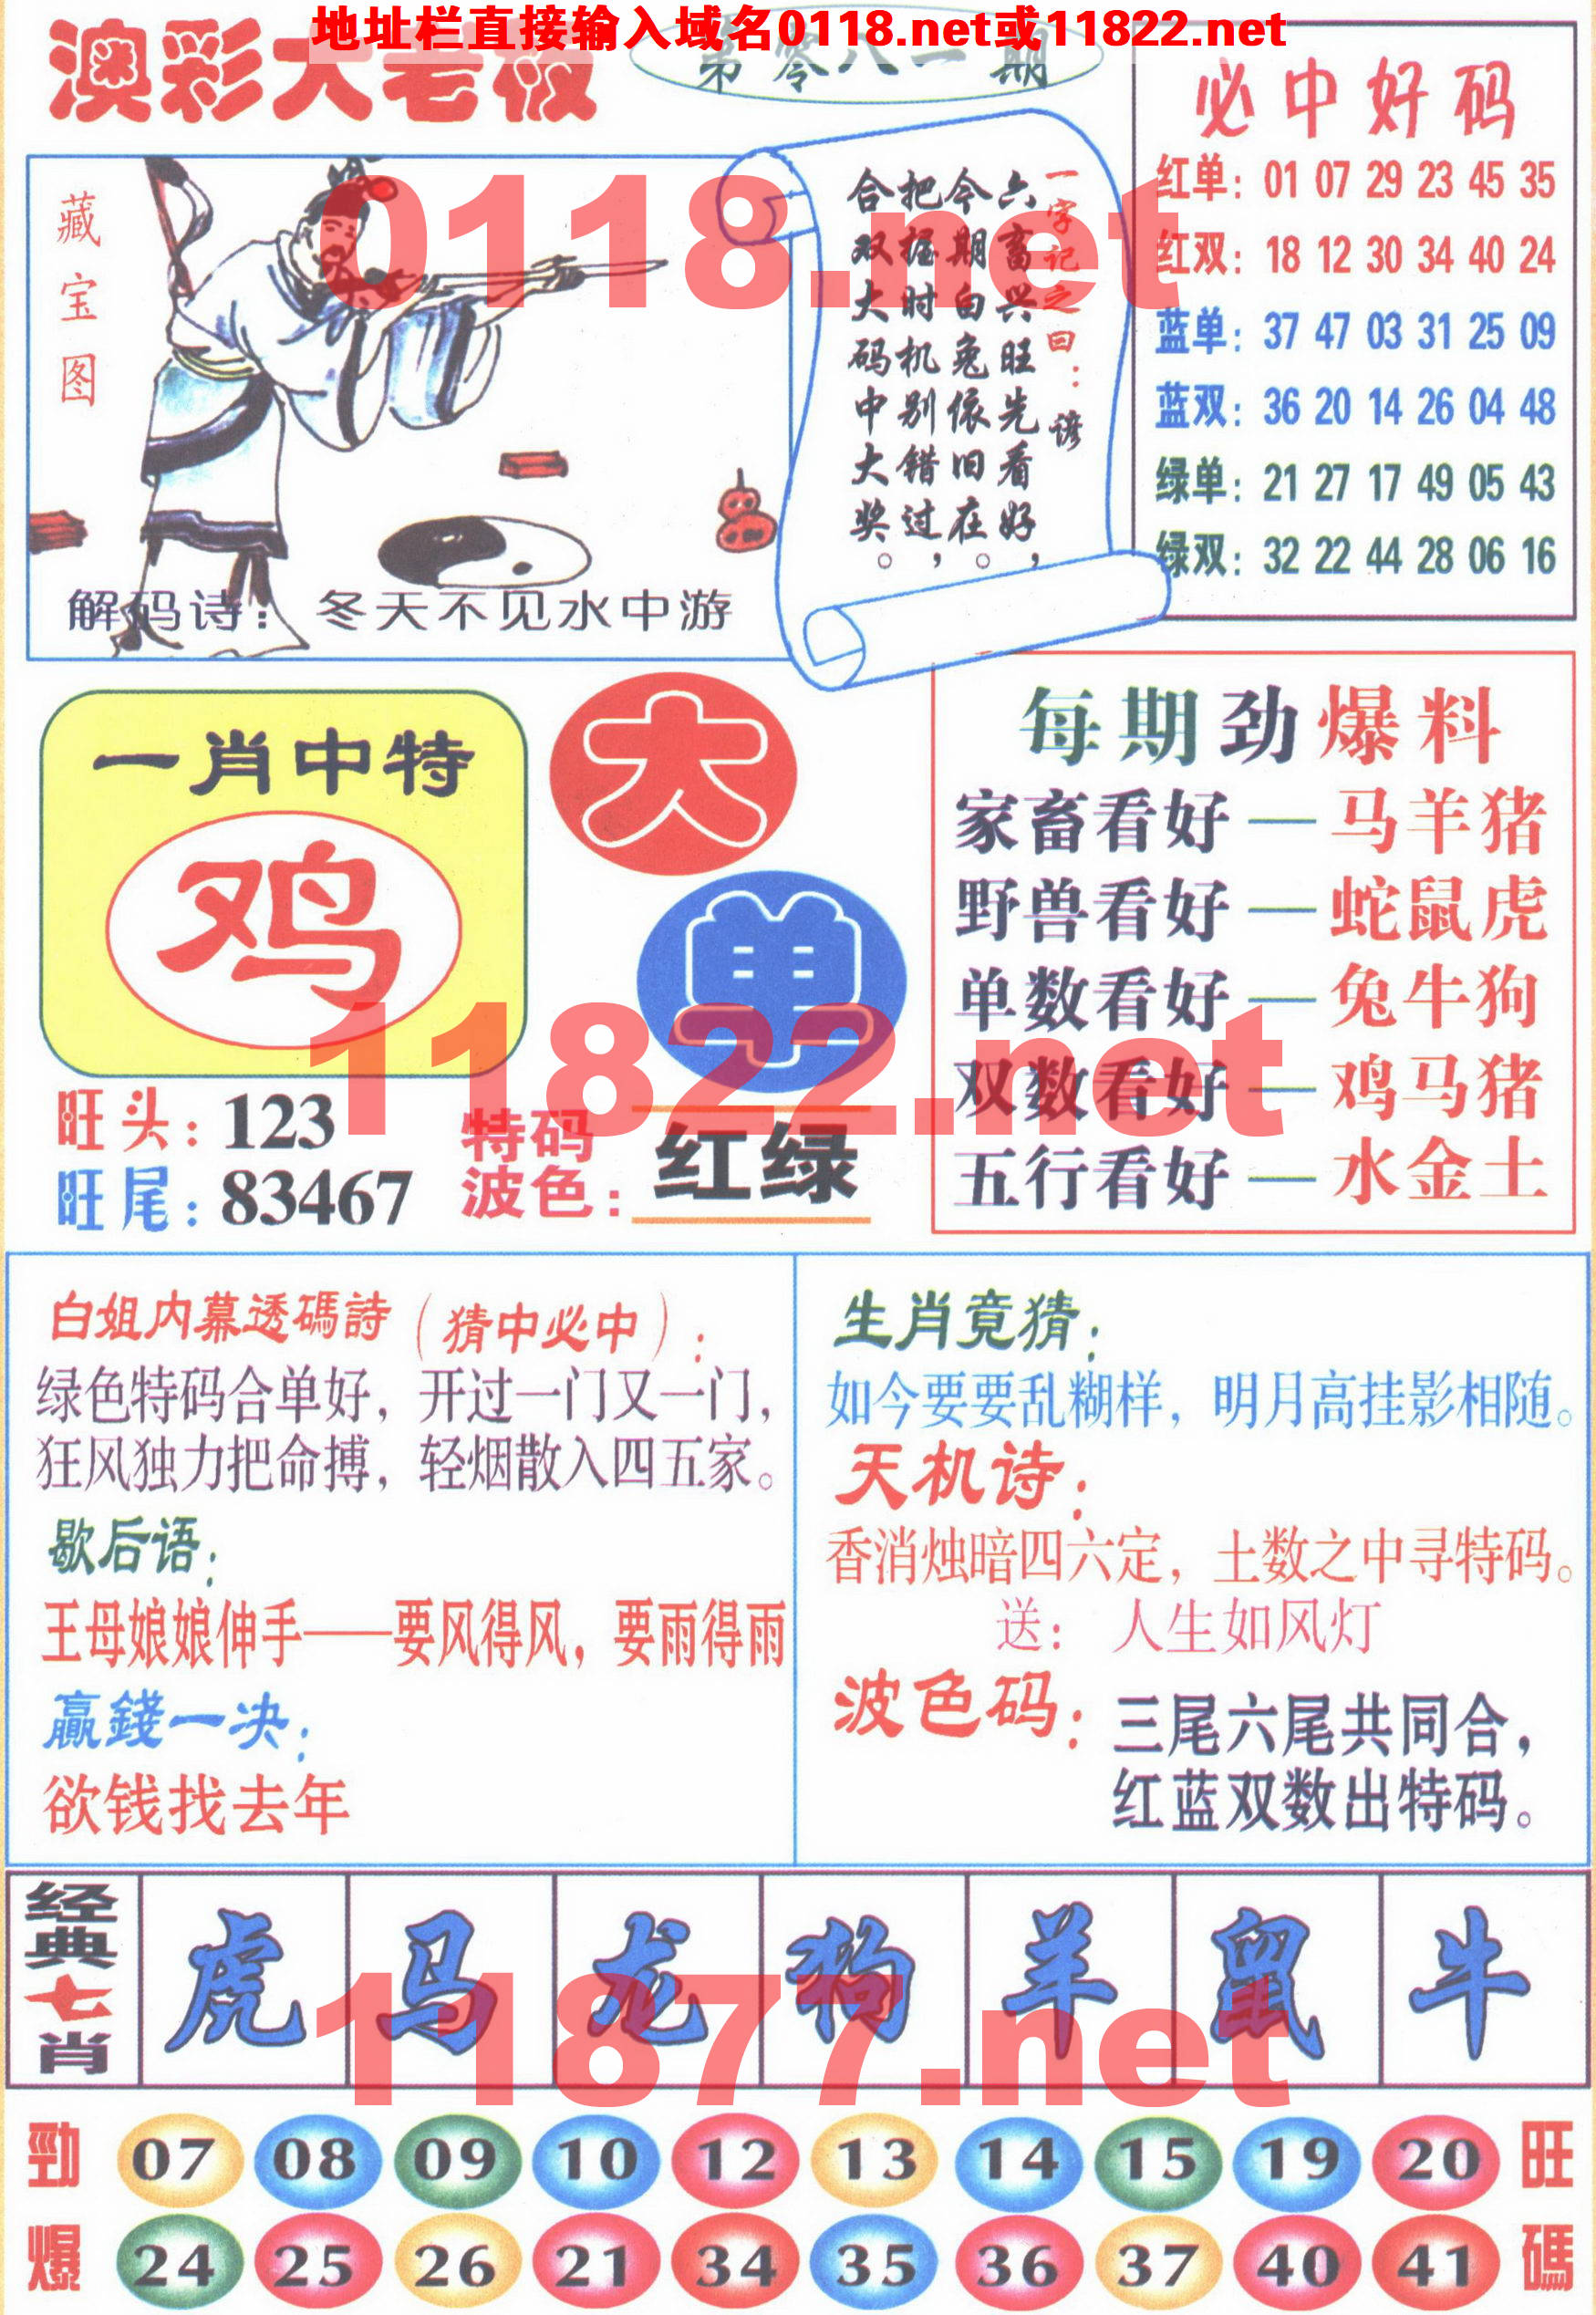 地址栏直接输入域名0118.net或11822.net
澳彩大老板
第零八一期
藏宝图
解码诗：冬天不见水中游
一字记之曰：谚
六畜兴旺先看好，
今期白兔依旧在。
把握时机别错过，
合双大码中大奖。
必中好码
红单：01 07 29 23 45 35
红双：18 12 30 34 40 24
蓝单：37 47 03 31 25 09
蓝双：36 20 14 26 04 48
绿单：21 27 17 49 05 43
绿双：32 22 44 28 06 16
0118.net
一肖中特
鸡
大
单
旺头：123
旺尾：83467
特码
波色：
红绿
每期劲爆料
家畜看好—马羊猪
野兽看好—蛇鼠虎
单数看好—兔牛狗
双数看好—鸡马猪
五行看好—水金土
11822.net
白姐内幕透碼詩（猜中必中）：
绿色特码合单好，开过一门又一门，
狂风独力把命搏，轻烟散入四五家。
歇后语：
王母娘娘伸手——要风得风，要雨得雨
赢錢一决：
欲钱找去年
生肖竟猜：
如今要要乱糊样，明月高挂影相随。
天机诗：
香消烛暗四六定，土数之中寻特码。
送：人生如风灯
波色码：
三尾六尾共同合，
红蓝双数出特码。
经典七肖
虎 马 龙 狗 羊 鼠 牛
11877.net
勁爆
07 08 09 10 12 13 14 15 19 20
24 25 26 21 34 35 36 37 40 41
旺碼